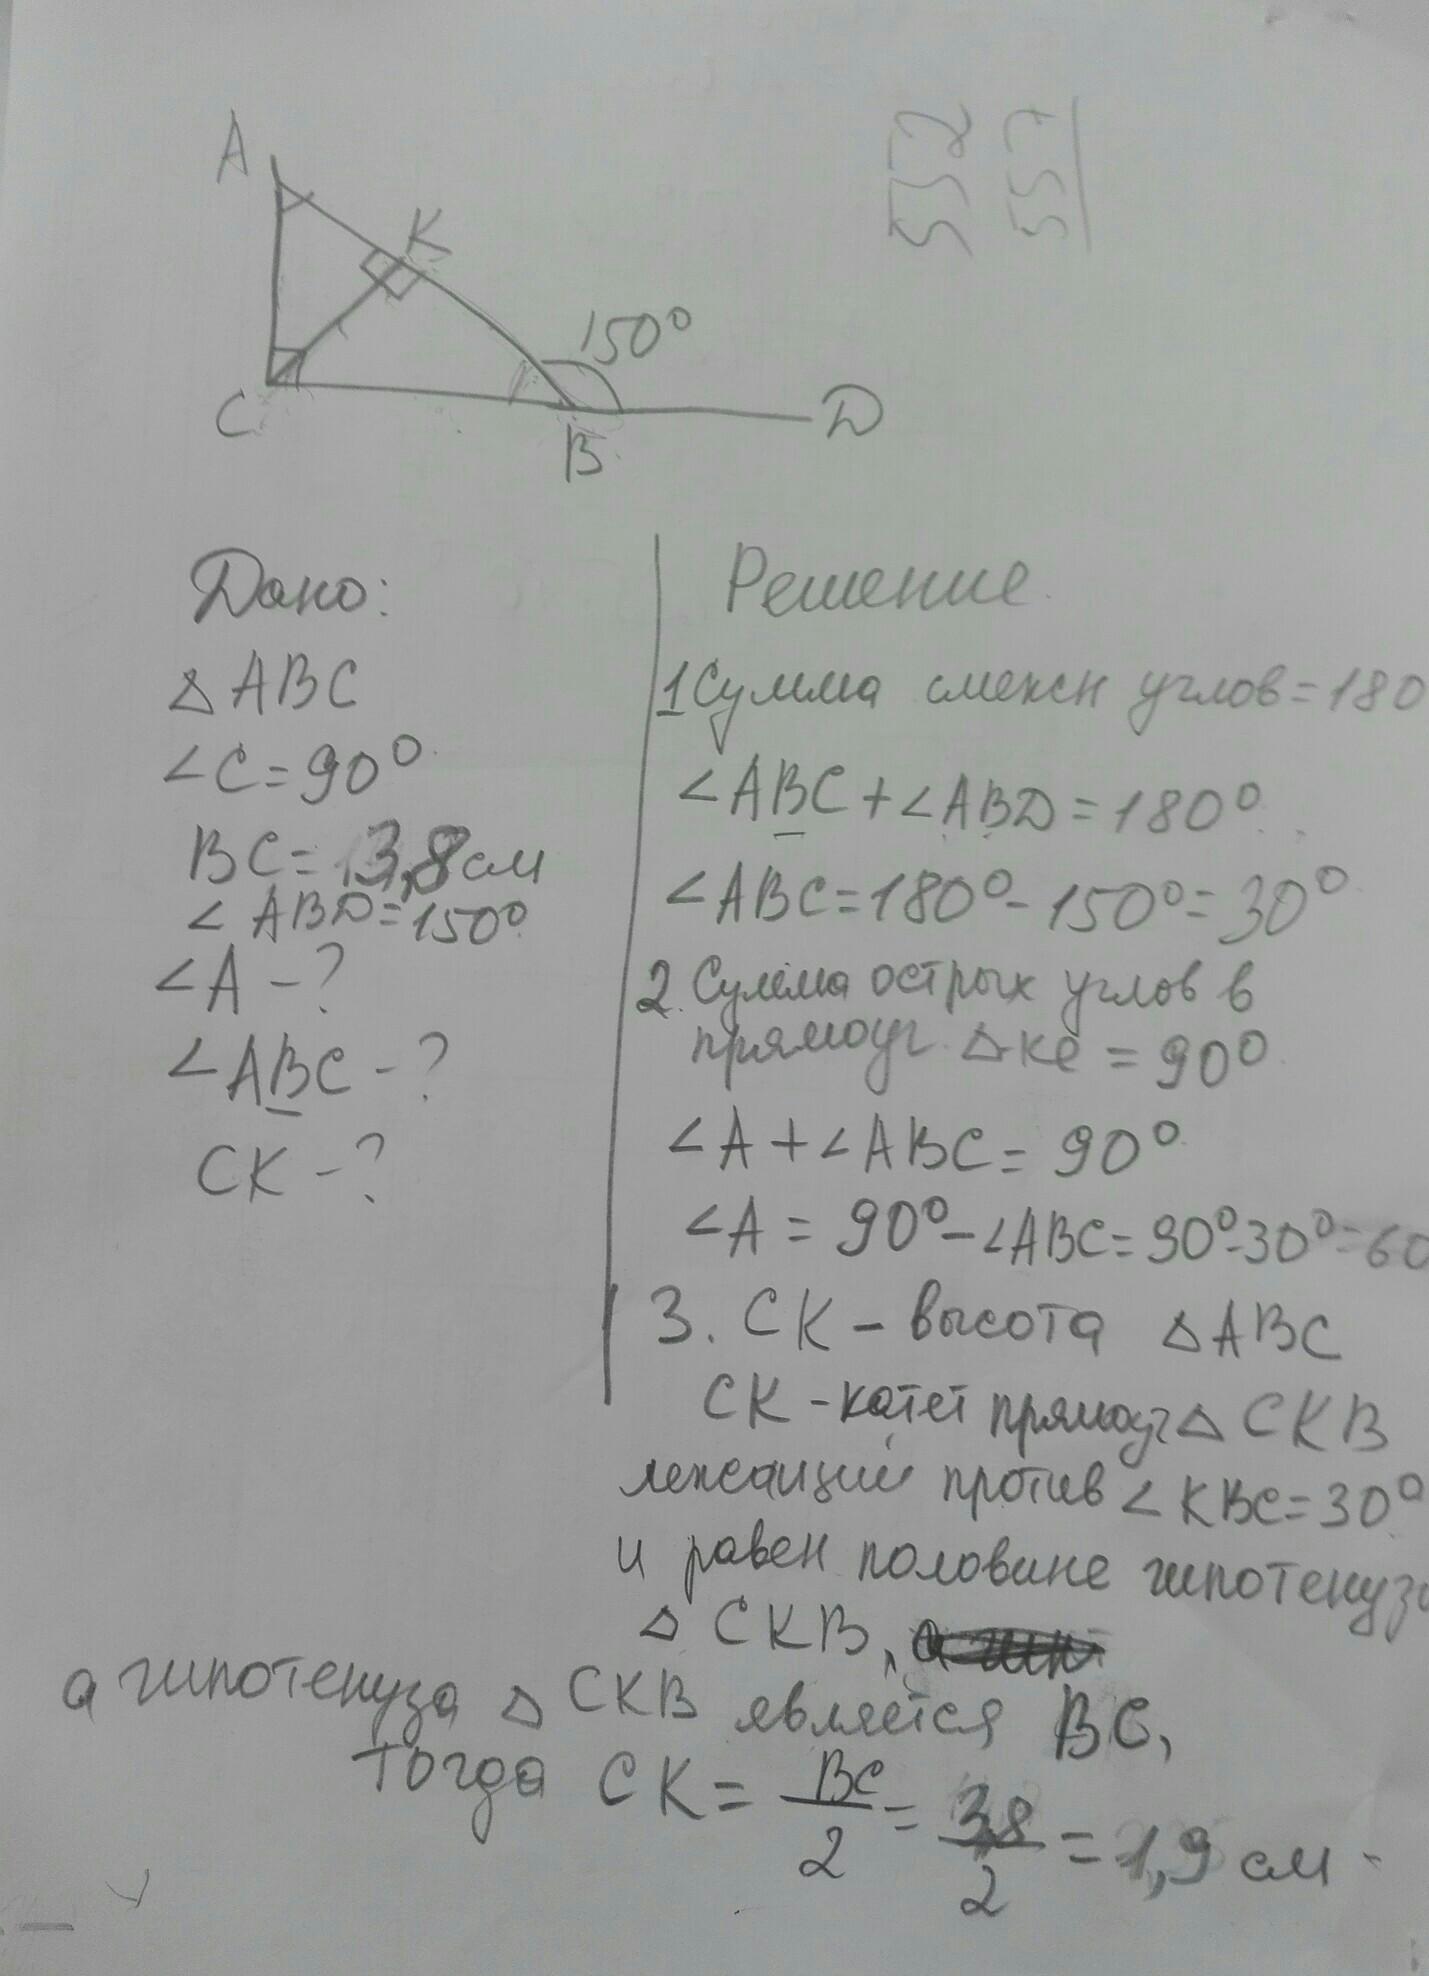 532
557
A
K
150°
C
B
D
Дано:
△ABC
∠C=90°
BC=3,8см
∠ABD=150°
∠A-?
∠ABC-?
CK-?
Решение
1 Сумма смежн углов=180
∠ABC+∠ABD=180°
∠ABC=180°-150°=30°
2. Сумма острых углов в
прямоуг. △ке = 90°
∠A+∠ABC=90°
∠A=90°-∠ABC=90°-30°=60
3. CK-высота △ABC
CK-катет прямоуг△CKB
лежащий против ∠KBC=30°
и равен половине гипотенузы
△CKB,
а гипотенуза △CKB является BC,
Тогда CK=BC/2=3,8/2=1,9 см